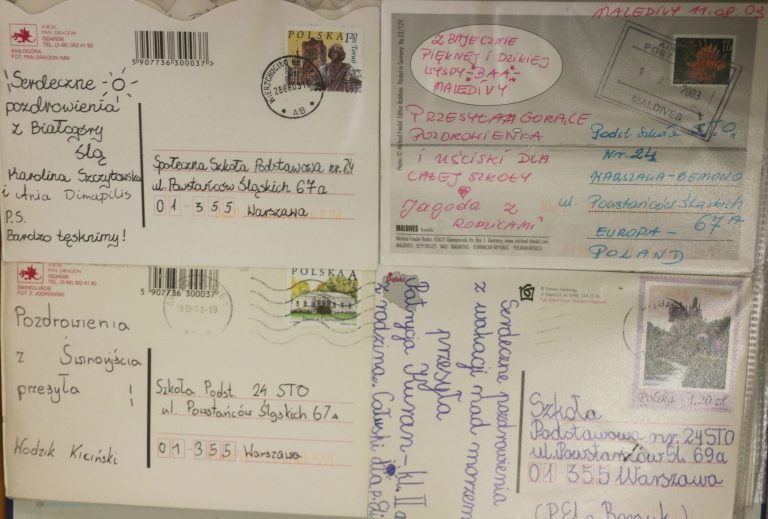 AJEJK
PAN DRAGON
GDAŃSK
TEL. (0-58) 302 41 60
BIAŁOGÓRA
FOT. PAN DRAGON TMM
5 907736 300037 >
POLSKA
1,20
Toruń
Serdeczne
pozdrowienia
z Białogóry
Ślą
Karolina Szczytowska
i Ania Dimapilis
P.S.
Bardzo tęsknimy!
Społeczna Szkoła Podstawowa nr. 24
ul. Powstańców Śląskich 67a
01-355 Warszawa
MALEDIVY 11.08.03
Z BAJECZNIE
PIĘKNEJ I DZIKIEJ
WYSPY-"BAA"-
MALEDIVY
PRZESYŁAM GORĄCE
POZDROWIENIA
I UŚCISKI DLA
CAŁEJ SZKOŁY
Jagoda z
RODZICAMI
2003
MALDIVES
Podst. Szkoła STO
Nr. 24
WARSZAWA-BEMOWO
ul. Powstańców Śląskich
67A
EUROPA-
POLAND
MALDIVES
AJEJK
PAN DRAGON
GDAŃSK
TEL. (0-58) 302 41 60
ŚWINOUJŚCIE
FOT. Z. JOSKOWSKI
5 907736 300037
POLSKA A
Pozdrowienia
z Świnoujścia
przesyła !
Włodzik Kiciński
Szkoła Podst. 24 STO
ul. Powstańców Śląskich 67A
01-355 Warszawa
Serdeczne pozdrowienia
z wakacji nad morzem
przesyła
Patrycja
kl. II a
z rodziną. Całuski dla p. Eli
Polska 1,20 zł
Szkoła
Podstawowa nr. 24 STO
ul. Powstańców Śl. 69a
01-355 Warszawa